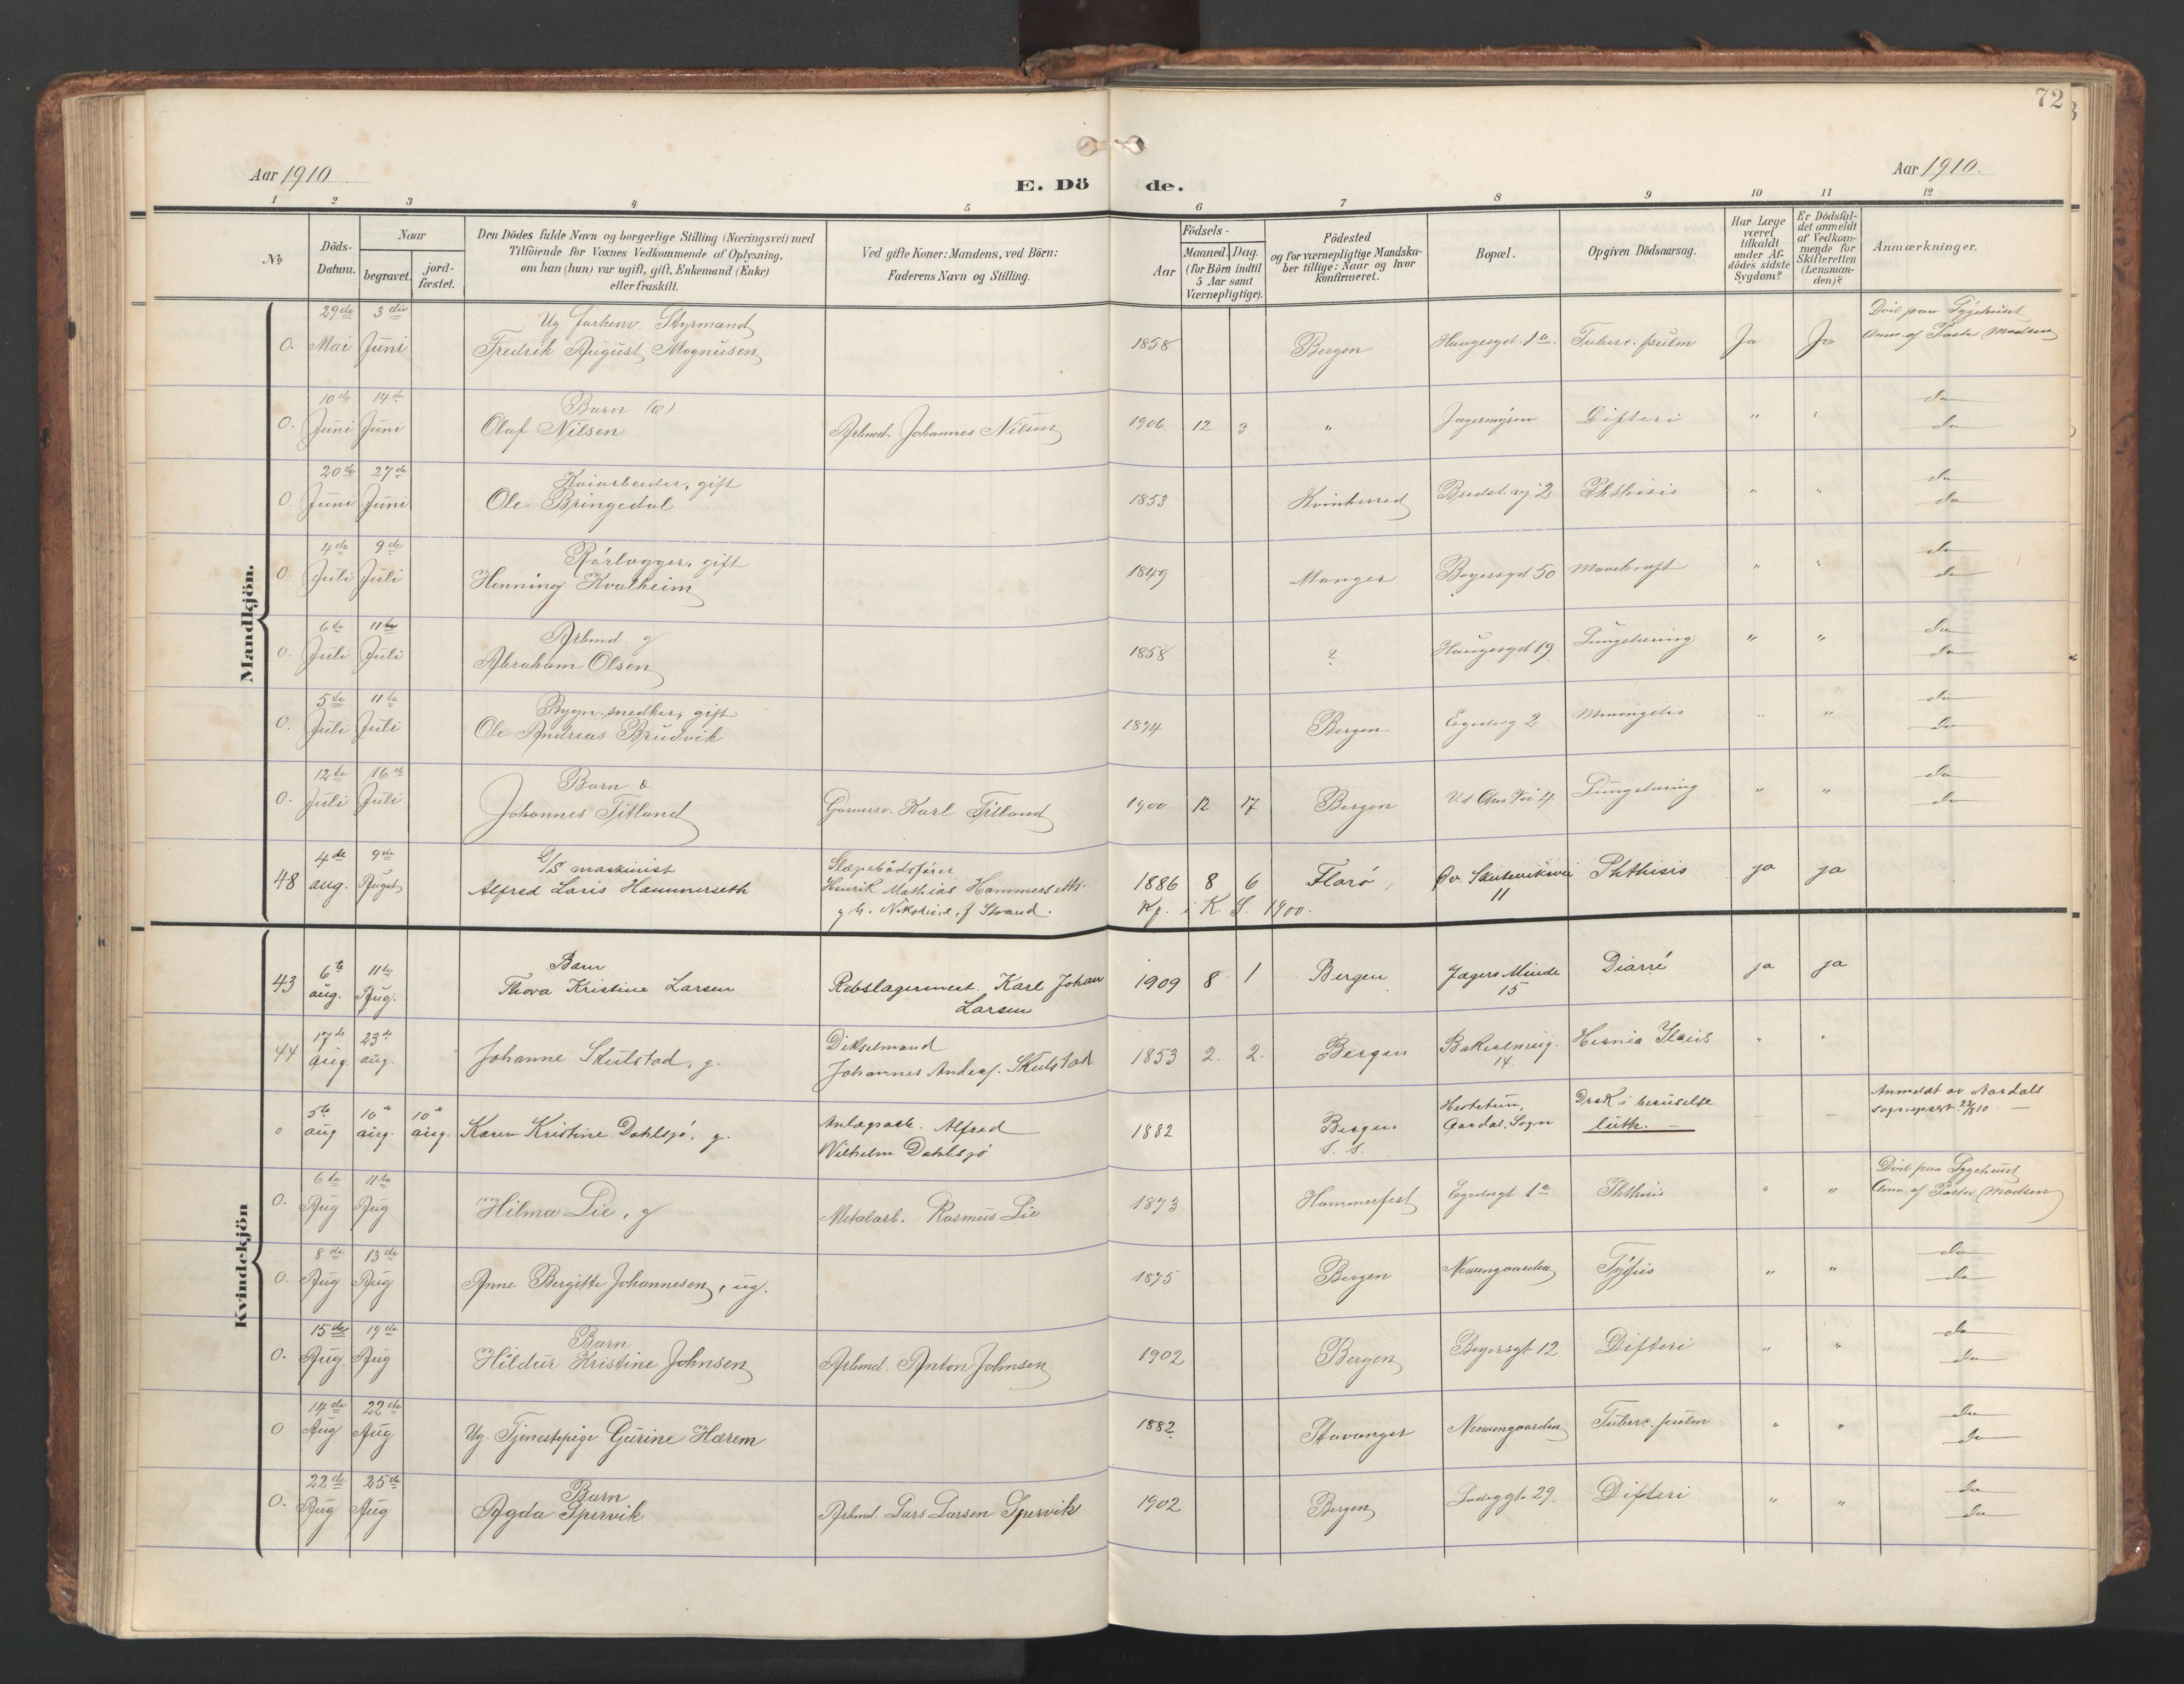 72
Aar 1910
E. Dö de.
Aar 1910.
1 2 3 4 5 6 7 8 9 10 11 12
No
Döds-Datum.
Naar
begravet. jord-fæstet.
Den Dödes fulde Navn og borgerlige Stilling (Næringsvei) med
Tilföiende for Voxnes Vedkommende af Oplysning,
om han (hun) var ugift, gift, Enkemand (Enke)
eller fraskilt.
Ved gifte Koner: Mandens, ved Börn:
Faderens Navn og Stilling.
Födsels-
Aar
Maaned. Dag.
(for Börn indtil
5 Aar samt
Værnepligtige).
Födested
og for værnepligtige Mandska-
ber tillige: Naar og hvor
konfirmeret.
Bopæl.
Opgiven Dödsaarsag.
Har Læge
været
tilkaldt
under Af-
dödes sidste
Sygdom?
Er Dödsfal-
det anmeldt
af Vedkom-
mende for
Skifteretten
(Lensman-
den)?
Anmærkninger.
Mandkjön.
29de 3die Ug forhenv. Styrmand Död paa Sygehuset
0. Mai Juni Fredrik August Magnusen 1858 Bergen Haugesgd. 1a. Tuberc. pulm Ja Ja Anm. af Pastor Madsen
10de 14de Barn do
0. Juni Juni Olaf Nilsen Arbmd. Johannes Nilsen 1906 12 3 " Jægermyren Difteri " " do
20de 27de Kaiarbeider, gift do
0 Juni Juni Ole Bringedal 1853 Kvinherred Bredst. vg 2 Phthisis " " do
4de 9de Rörlægger, gift do
0. Juli Juli Henning Kvalheim 1849 Manger Beyersgd 50 Mavekræft " " do
6te 11te Arbmd. g do
0. Juli Juli Abraham Olsen 1858 ? Haugesgd 19 Lungetæring " " do
5te 11te Bygn. snedker, gift do
0. Juli Juli Ole Andreas Brudvik 1874 Bergen Egedesg 2 Meningitis " " do
12te 16de Barn do
0. Juli Juli Johannes Titland Garversv. Karl Titland 1900 12 17 Bergen Lungetæring " " do
4de 9de D/S maskinist Slæpebådsfører
48 aug. August Alfred Laris Hammerseth Henrik Mathias Hammerseth. 1886 8 6 Florø, Øv. Skuteviksvei Phthisis ja ja
g. h. Nikoline, f Strand. Kf. i K. S. 1900. 11
Kvindekjön
6te 11te Barn
43 aug. Aug. Thora Kristine Larsen Rebslagermest. Karl Johan 1909 8 1 Bergen Jægers Minde Diarré ja ja
Larsen 15
17de 23de Dikselmand
44 aug. aug. Johanne Skulstad, g. Johannes Anders. Skulstad 1853 2. 2. Bergen Bakersmug. Hernia " "
14.
5te 10de 10de Anlægsarb. Alfred Aardal, Sogn Drak i beruselse Anmeldt av Aardals
0 aug aug. aug. Karen Kristine Dahlsjö, g. Vilhelm Dahlsjö 1882 Bergen luth. — — — sogneprest 22/8 10 —
S. S.
6te 11te Död paa Sygehuset
0. Aug Aug Hilma Lie, g Metalarb. Rasmus Lie 1873 Hammerfest Egedesgt 1a Phthisis " " Anm. af Pastor Madsen
8de 13de do
0. Aug Aug Anne Bergitte Johannesen, ug. 1875 Bergen Neevengaarden Tyfus " " do
15de 19de Barn do
0. Aug. Aug Hildur Kristine Johnsen Arbmd. Anton Johnsen 1902 Bergen Beyersgt 12 Difteri " " do
14de 22de do
0 Aug Aug Ug. Tjenestepige Gurine Hærem 1882 Stavanger Neevengaarden Tuberc. pulm " " do
22de 25de Barn do
0. Aug Aug Agda Spervik Arbmd. Lars Larsen Spervik 1902 Bergen Ladeggt. 29. Difteri " " do